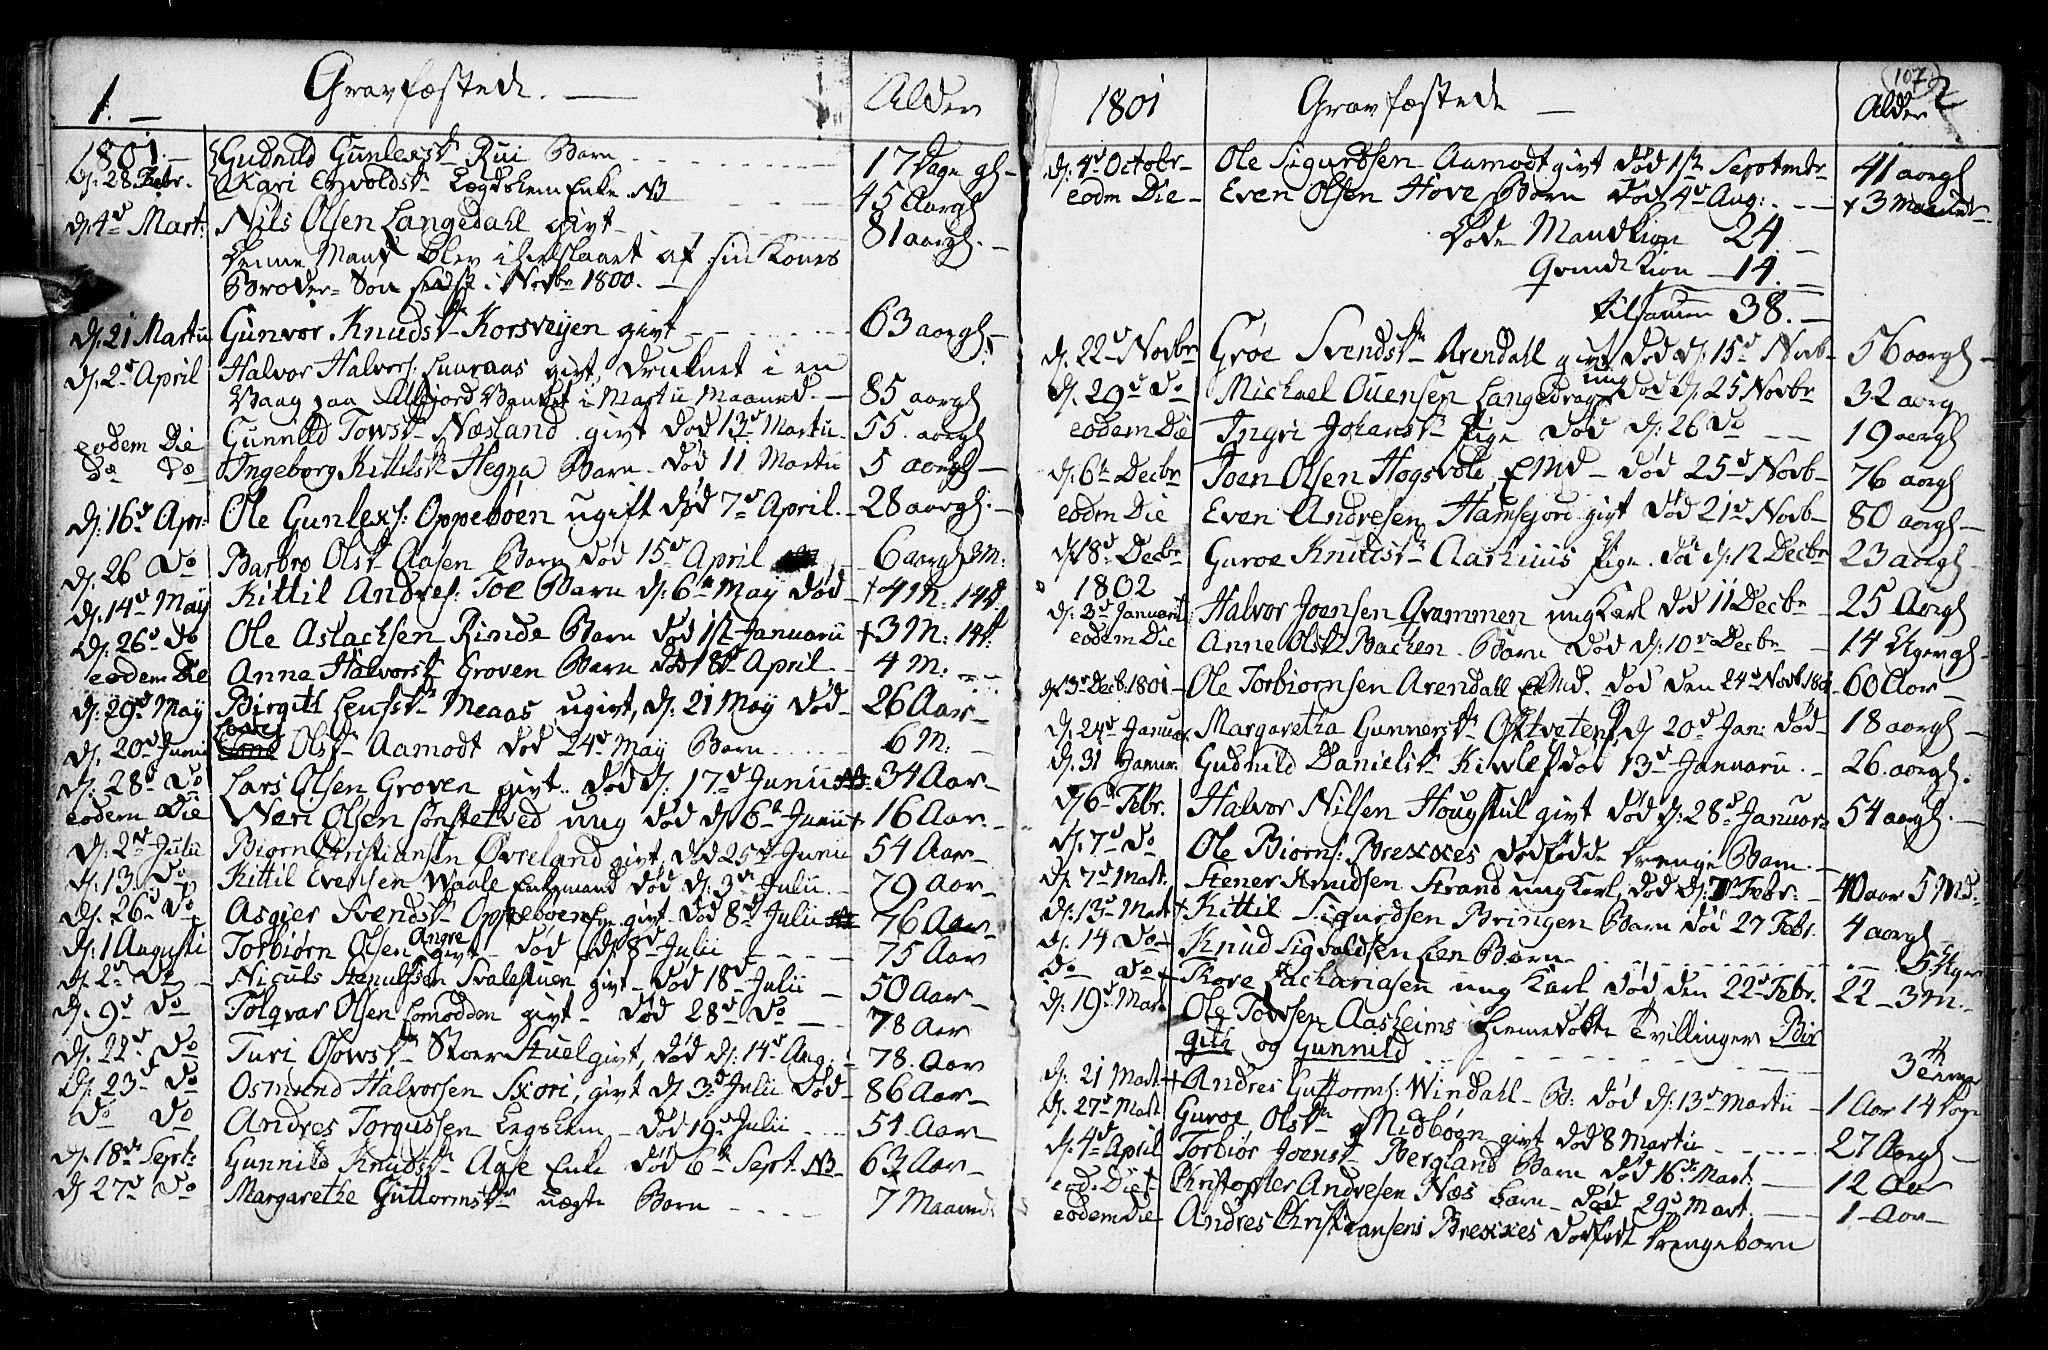 1. Gravfæstede. Alder
1801.
d. 28 Febr. Gudnild Gunlexsdr Rui Barn 17 Dage gl
Kari Envoldsdr Lægdslem Enke NB 45 Aargl
d. 4de Mart: Nils Olsen Langedahl givt 81 aargl.
Denne Mand blev ihielslaaet af sin Kones
Broder Søn sidst i Novbr 1800.
d. 21 Martii Gunvor Knudsdr Korsveyen givt 63 aargl
d. 2de April Halvor Halvors: Luuraas givt, druknet i en
Vaag paa Vandet i Martii Maaned. 85 aargl
eodem Die Gunnild Towsdr Næsland givt død 13de Martii 55 aargl
do do Ingeborg Kittilsdr Hegna Barn død 11 Martii 5 aargl
d. 16de Apr: Ole Gunlexs: Oppebøen ugift død 7de April. 28 aargl.
d. 26 do Barbro Olsdr Aasen Barn død 15de April 6 aargl 3M:
d. 14de May Kittil Andres: Toe Barn d. 6te May død + 4M: 14d
d. 26de do Ole Aslachsen Rinde Barn død 1ste Januarii + 3M: 14d.
eodem Die Anne Halvorsdr Groven Barn død 8de April 4 M:
d. 29de May Birgith Leufsdr Meaas ugivt, d. 21 May død 26 Aar
d. 20de Junii Olsdr Aamodt død 24de May Barn 6 M:
d. 28de do Lars Olsen Groven givt. død d. 17de Junii 34 Aar
eodem Die Neri Olsen Sønstetved ung død d. 6te Junii + 16 Aar.
d. 2de Julii Biørn Christiansen Øvreland givt, død 25de Junii 54 Aar
d. 13 do Kittil Evensen Waale Enkemand død d. 3de Julii. 79 Aar
d. 26de do Asgier Svendsdr Oppebøen givt død 8de Julii 76 Aar
d. 1 Augusti Torbiørn Olsen Angre givt død d. 8de Julii 75 Aar
d. 2de do Niculs Stenulfsen Svalestuen givt død 18de Julii 50 Aar
d. 9de do Tolgvar Olsen Lomodden givt død 28de do 78 Aar
d. 22de do Turi Olowsdr Stoer Stuel givt, død d. 14de Aug: 78. Aar
d. 23de do Osmund Halvorsen Skori, givt d. 3de Julii død 86 Aar
do do Andres Torgussen Legslem død 19de Julii 51 Aar
d. 18de Sept: Gunnild Knudsdr Aase Enke død 6te Sept. NB 63 Aar
d. 27de do Margarethe Guttormsdr uægte Barn 7 Maaned
1801 Gravfæstede Alder
107
d. 4de Octobr Ole Sigurdsen Aamodt givt død 1ste Septembr 41 aargl
eodm Die Even Olsen Hove Barn død 4de Aug: + 3 Maaned
Døde Mandkiøn 24
Qvindekiøn 14.
tilsamen 38.
d. 22de Novbr Groe Svendsdr Arendall givt død d. 15de Novb 56 aargl
d. 29de do Michael Ouensen Langedrag ung død d. 25 Novbr 32 aarg
eodem Die Ingri Johansdr Pige død d. 26 do 19 aargl
d. 6te Decbr Joen Olsen Hogsvole, EMd død 25de Novb 76 aargl
eodm Die Even Andresen Hamsefjord givt død 21de Novb 80 aargl
d. 18de Decbr Guroe Knudsdr Aarhuus Pige. død d. 12 Decbr 23 aargl
1802
d. 3de Januarii Halvor Joensen Grammen ung Karl død 11 Decbr 25 Aargl
eodem Die Anne Olsdr Bachen. Barn død d. 10de Decbr 14 Uger gl
d. 3de Decb. 1801 Ole Torbiørnsen Arendall EMd. død den 24de Novb 1801 60 Aar
d. 24de Januar Margaretha Gunnersdr Qvitveten, d. 20de Jan: død 18 aargl
d. 31 Januar: Gudnild Danielsdr Kivle død 13de Januarii 26. aargl.
d. 6te Febr. Halvor Nilsen Hougstul givt død d. 28de Januar 54 aargl.
d. 7de do Ole Biørns: Brekkes dødfødde drenge Barn.
d. 7de Mart. Stener Knudsen Strand ung Karl, død d. 7de Febr. 40 aar 5 Md.
d. 13de Mart + Kittil Sigurdsen Bringen Barn død 27 Febr. 4 aargl
d. 14 do Knud Sigvaldsen Lien Barn 5 Uger
do do + Tore Zachariasen ung Karl død den 22de Febr. 22 - 3M.
d. 19de Mart Ole Tovsen Aasheims hiemedøbte Tvillinger Bir
gith og Gunnild 3
d. 21 Mart + Andres Guttorms: Windahl B: død d. 13de Martii 1 Aar 14 Dage
d. 27de Mart Guroe Olsdr Midbøen givt død 8 Martii 27 Aargl
d. 4de April Torbiør Joensdr Bergland Barn død 16de Mart: 12 Aar
eod. Die + Christopher Andresen Næs barn død 29de Mart. 1 Aar
eodem Die Andres Christiansens Brekkes dødfødt drengebarn